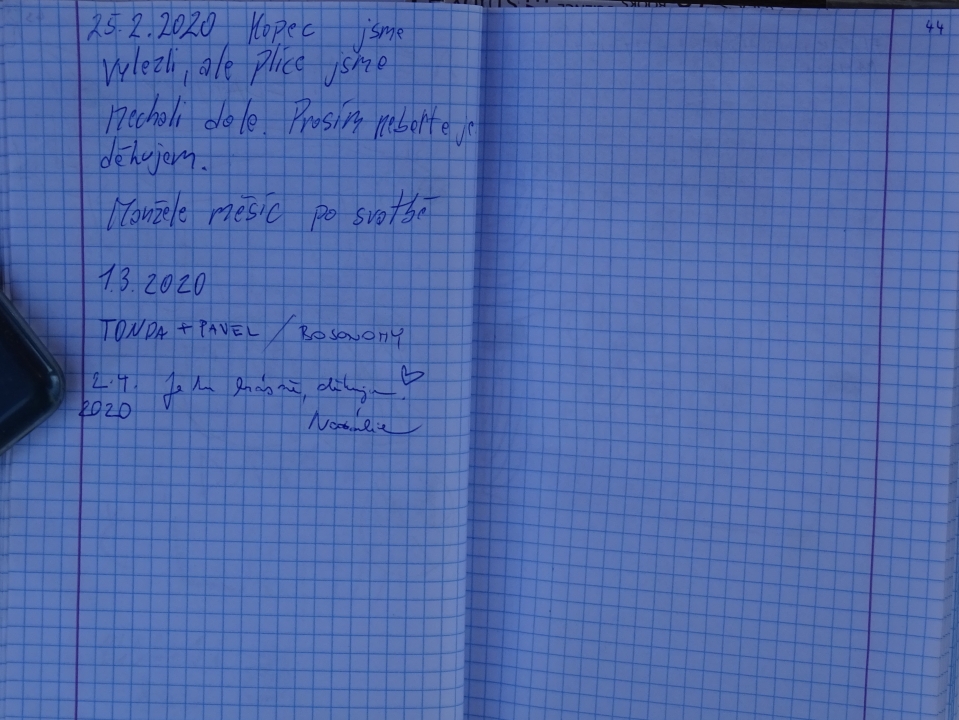 44
25.2.2020 Kopec jsme
vylezli, ale plíce jsme
nechali dole. Prosím neberte je
děkujem.
Manžele měsíc po svatbě
1.3.2020
TONDA + PAVEL / BOSONOHY
2.4. Je tu krásně, děkuju. ♡
2020
Natálie